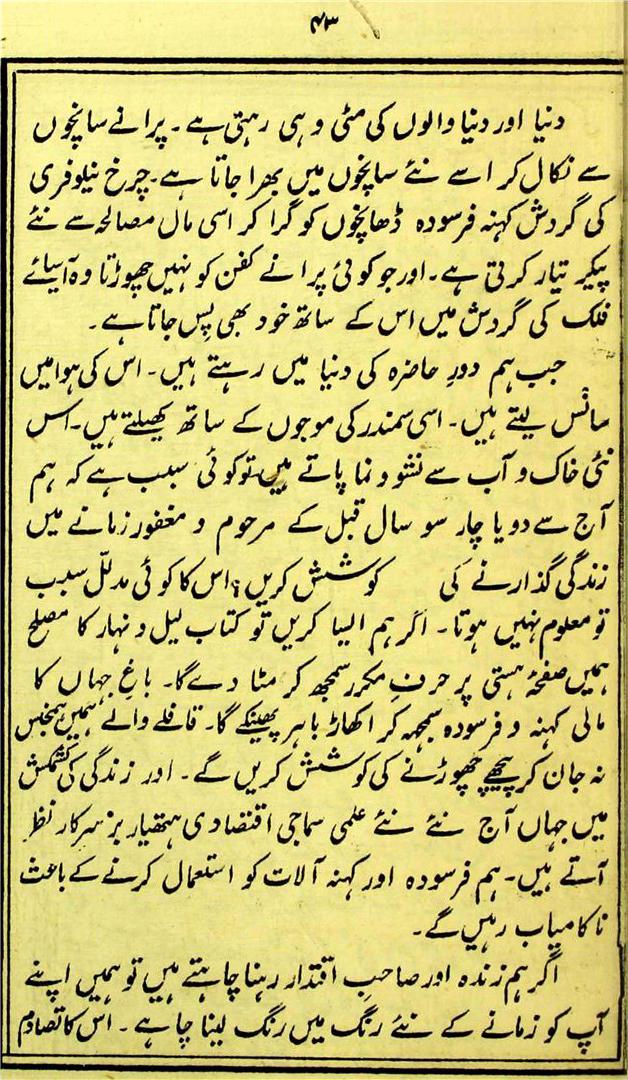 ۴۳
دنیا اور دنیا والوں کی مٹی وہی رہتی ہے۔ پرانے سانچوں
سے نکال کر اسے نئے سانچوں میں بھرا جاتا ہے۔ چرخ نیلوفری
کی گردش کہنہ فرسودہ ڈھانچوں کو گرا کر اسی مال مصالحہ سے نئے
پیکر تیار کرتی ہے۔ اور جو کوئی پرانے کفن کو نہیں چھوڑتا وہ آسیائے
فلک کی گردش میں اس کے ساتھ خود بھی پِس جاتا ہے۔
جب ہم دورِ حاضرہ کی دنیا میں رہتے ہیں۔ اس کی ہوا میں
سانس لیتے ہیں۔ اسی سمندر کی موجوں کے ساتھ کھیلتے ہیں۔ اس
نئی خاک و آب سے نشو و نما پاتے ہیں تو کوئی سبب ہے کہ ہم
آج سے دو یا چار سو سال قبل کے مرحوم و مغفور زمانے میں
زندگی گذارنے کی کوشش کریں؟ اس کا کوئی مدلل سبب
تو معلوم نہیں ہوتا۔ اگر ہم ایسا کریں تو کتاب لیل و نہار کا مصلح
ہمیں صفحۂ ہستی پر حرفِ مکرر سمجھ کر مٹا دے گا۔ باغِ جہاں کا
مالی کہنہ و فرسودہ سمجھ کر اکھاڑ باہر پھینکے گا۔ قافلے والے ہمیں ہمجنس
نہ جان کر پیچھے چھوڑنے کی کوشش کریں گے۔ اور زندگی کی کشمکش
میں جہاں آج نئے نئے علمی سماجی اقتصادی ہتھیار برسرکار نظر
آتے ہیں۔ ہم فرسودہ اور کہنہ آلات کو استعمال کرنے کے باعث
ناکامیاب رہیں گے۔
اگر ہم زندہ اور صاحبِ اقتدار رہنا چاہتے ہیں تو ہمیں اپنے
آپ کو زمانے کے نئے رنگ میں رنگ لینا چاہے۔ اس کا تصادم